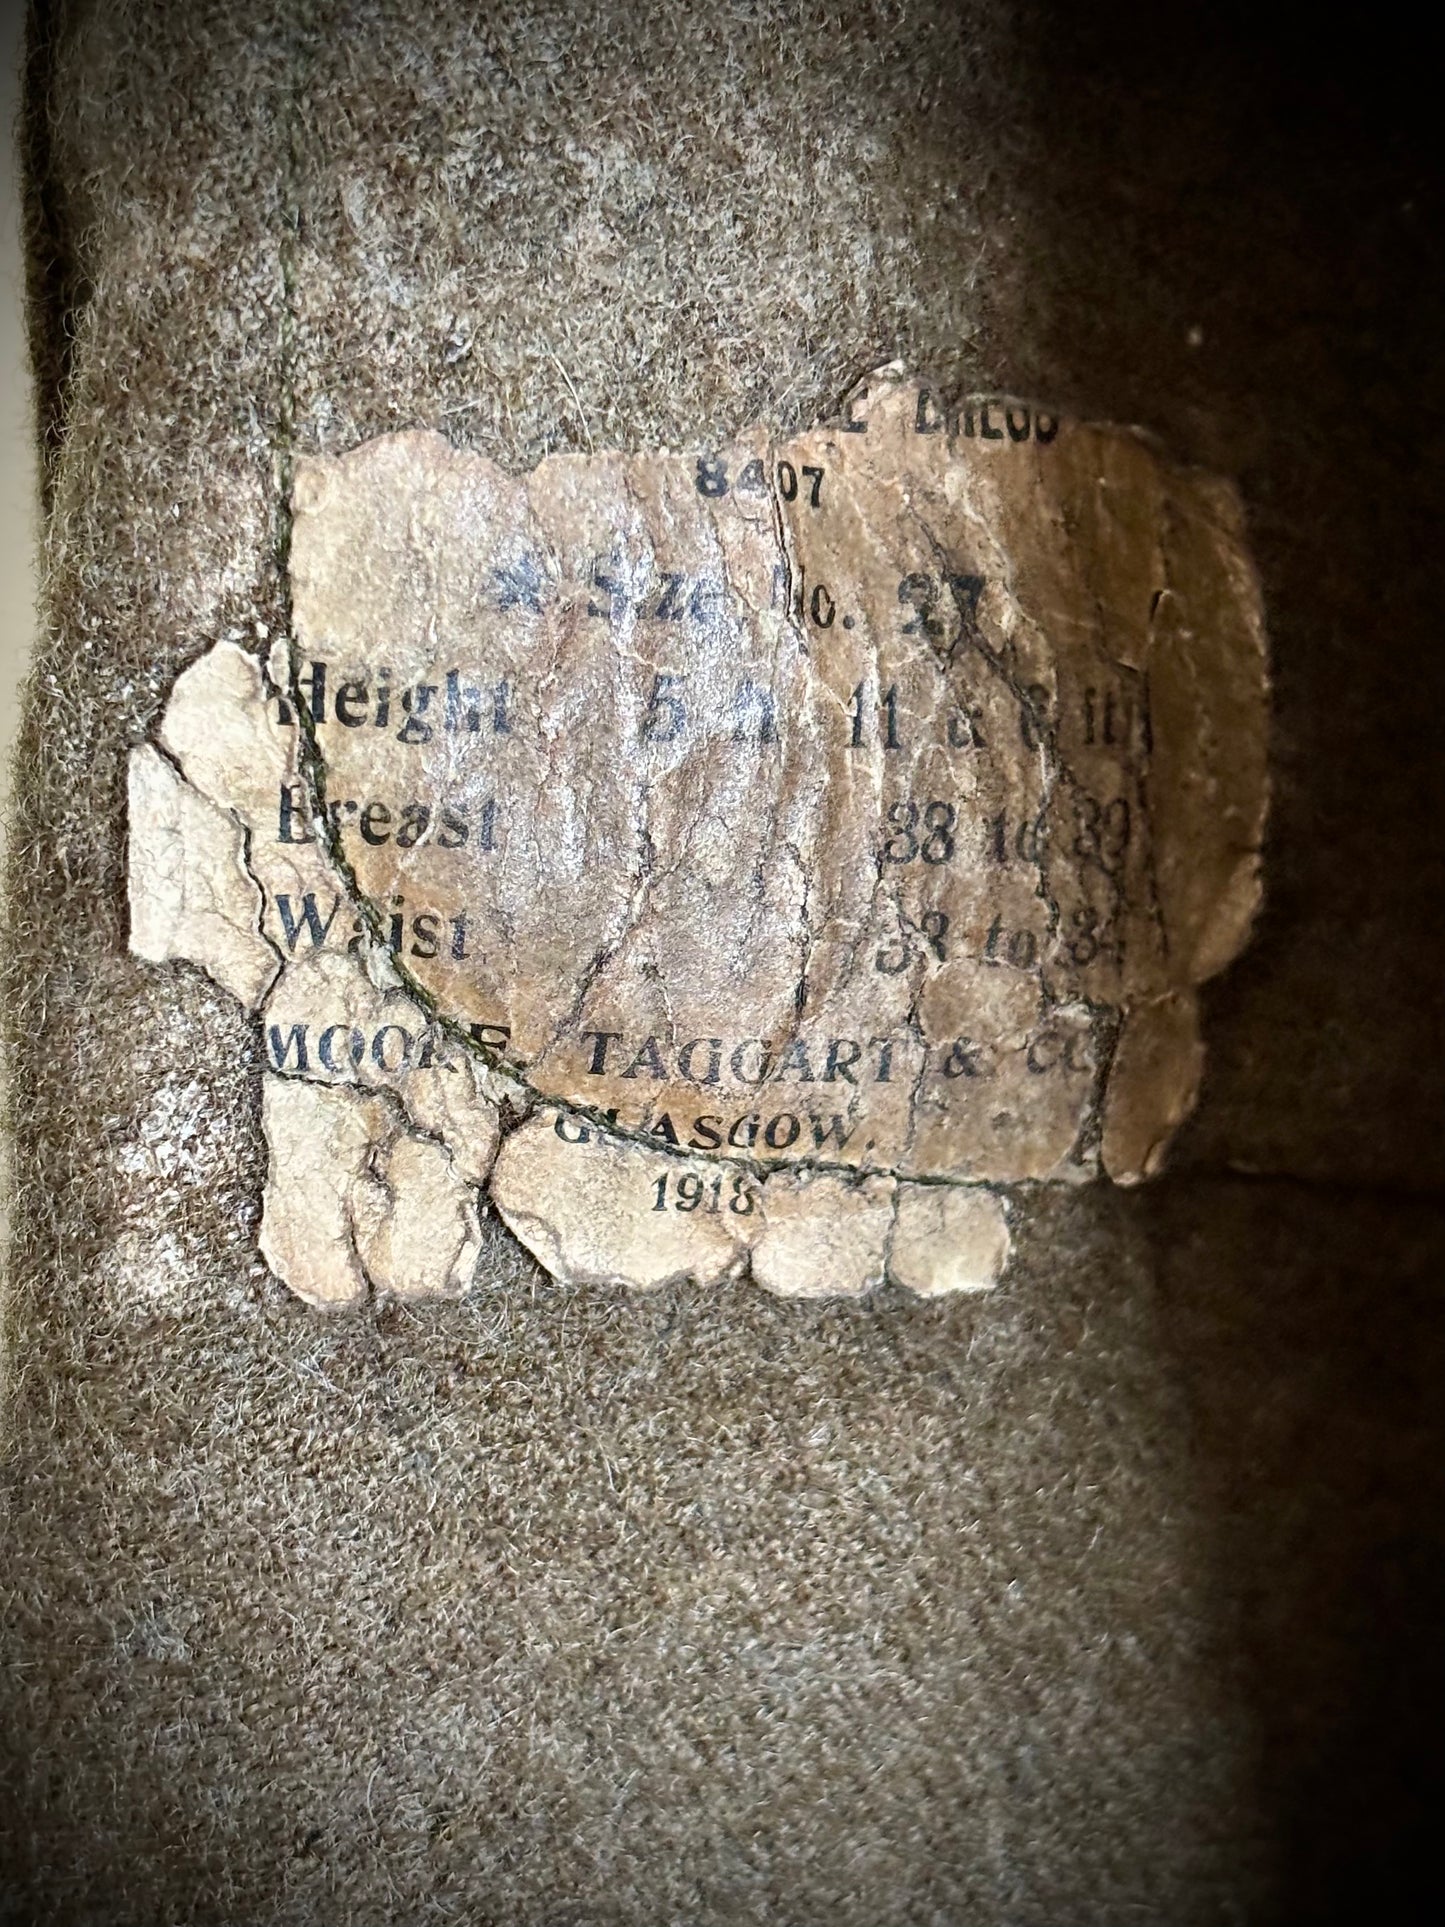 DRESS
8407
Size No. 27
Height 5 ft 11 to 6 ft
Breast 38 to 39
Waist 33 to 34
MOORE TAGGART & CO
GLASGOW.
1918